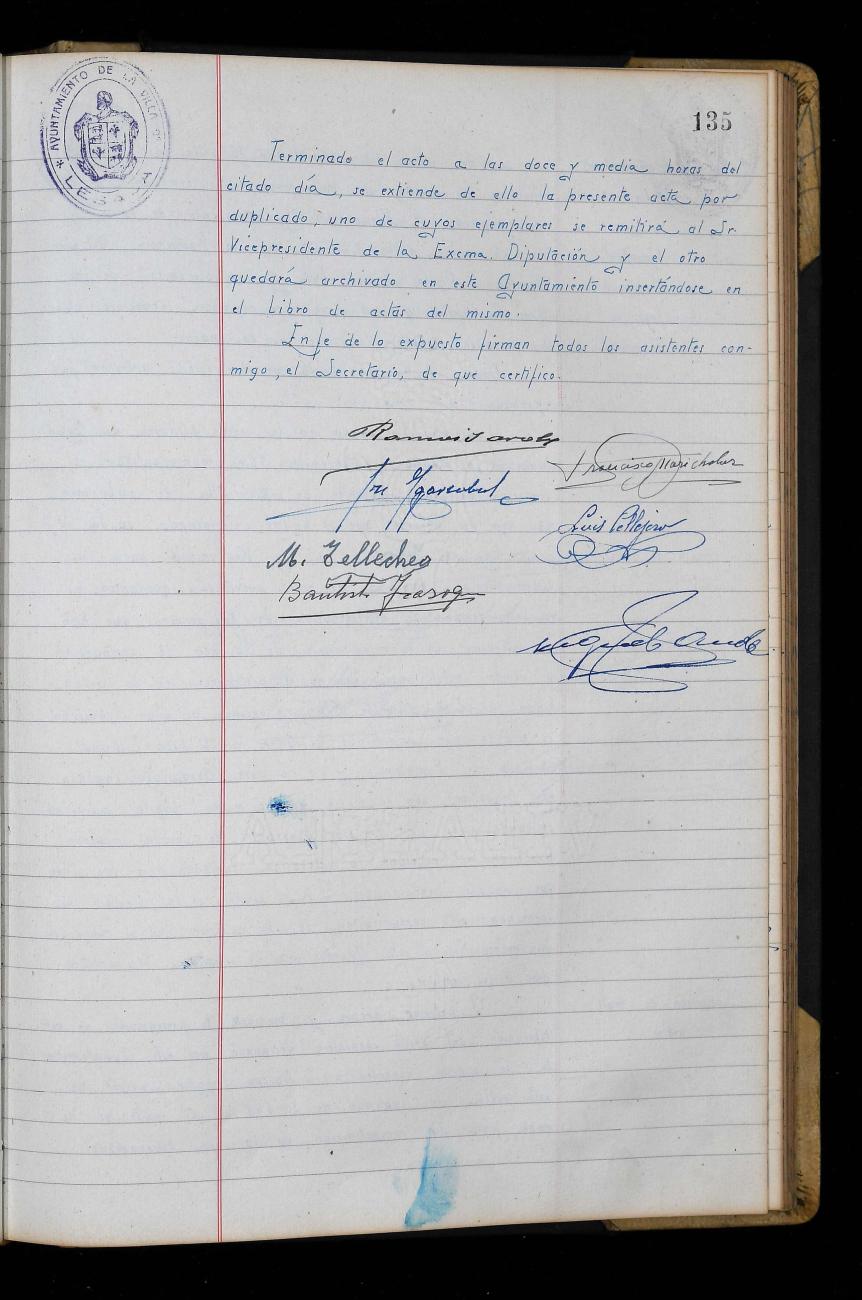 AYUNTAMIENTO DE LA VILLA DE
LESACA
135
Terminado el acto a las doce y media horas del
citado día, se extiende de ello la presente acta por
duplicado, uno de cuyos ejemplares se remitirá al Sr.
Vicepresidente de la Excma. Diputación y el otro
quedará archivado en este Ayuntamiento insertándose en
el Libro de actas del mismo.
En fe de lo expuesto firman todos los asistentes con-
migo, el Secretario, de que certifico.
Francisco Marichalar
Luis Pellejero
M. Tellechea
Bautista